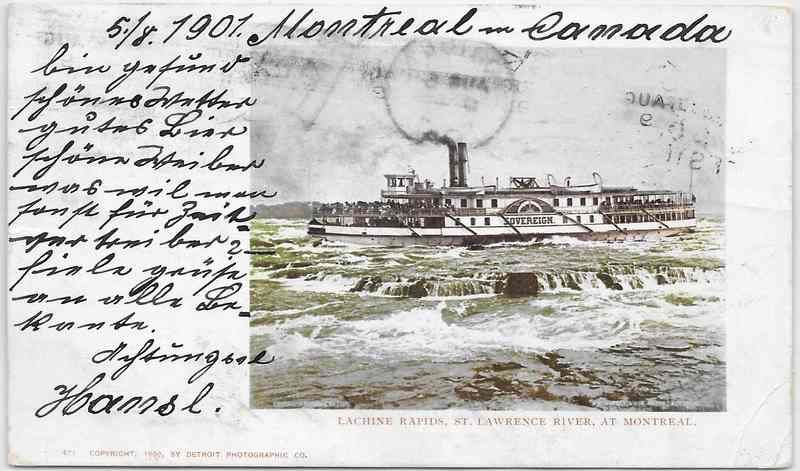 5./8. 1901. Montreal in Canada
bin gesund
schönes Wetter
gutes Bier
schöne Weiber
was wil man
sonst für Zeit
vertreiber?
fiele grüße
an alle Be-
kante.
Achtungsvol
Hansl.
SOVEREIGN.
AUG
9
LACHINE RAPIDS, ST. LAWRENCE RIVER, AT MONTREAL.
COPYRIGHT, 1900, BY DETROIT PHOTOGRAPHIC CO.